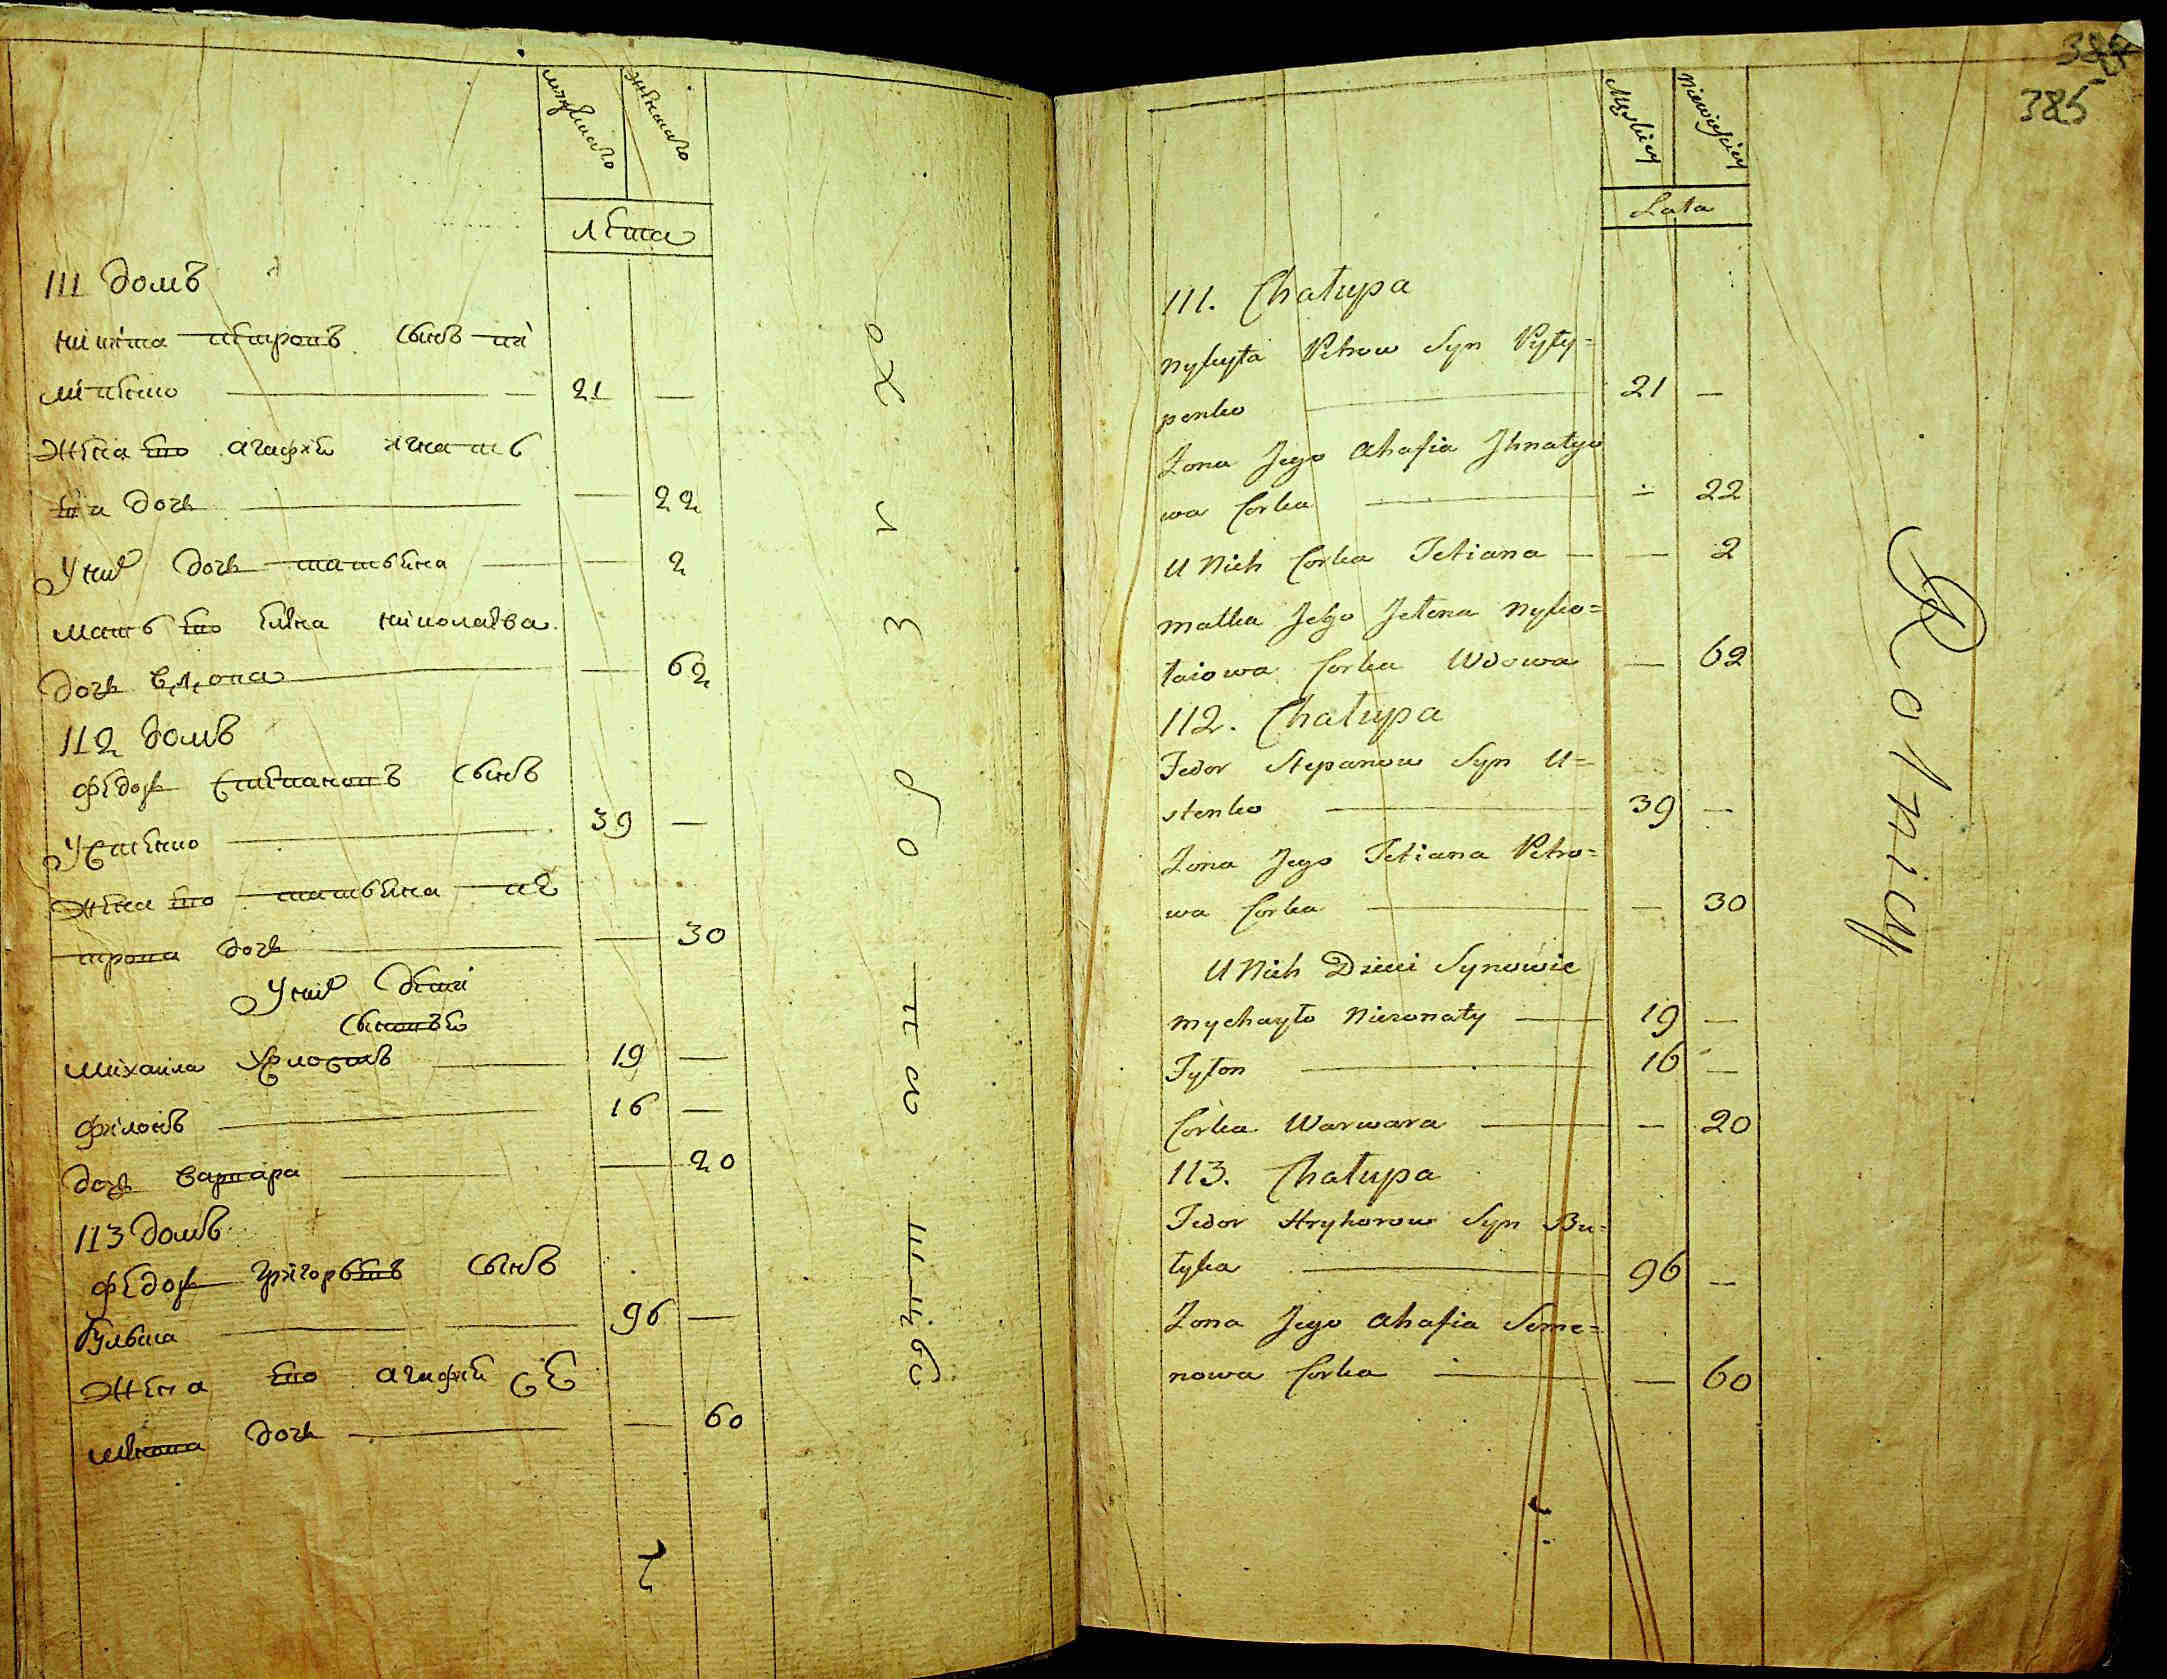 мужеска женска
лета
111 домъ
никита петровъ сынъ пи
липенко — 21 —
жена его агафия игнать
ева дочь — 22
у них дочь татьяна — 2
мать его елена николаева
дочь вдова — 62
112 домъ
федор степановъ сынъ
устенко — 39 —
жена его татьяна пе
трова дочь — 30
у них дети
сыновья
михаила холостъ — 19 —
филонъ — 16 —
дочь варвара — 20
113 домъ
федор григорьевъ сынъ
булыка — 96 —
жена его агафия се
менова дочь — 60
385
Męskiey Niewieściey
Lata
111. Chałupa
Nykyta Petrow Syn Pyły=
penko — 21 —
Zona Jego Ahafia Jhnatyo
wa Corka — 22
U Nich Corka Tetiana — — 2
Matka Jego Jełena Nyko=
łaiowa Corka Wdowa — 62
112. Chałupa
Fedor Stepanow Syn U=
stenko — 39 —
Zona Jego Tetiana Petro=
wa Corka — — 30
U Nich Dzieci Synowie
Mychayło Niezonaty — 19 —
Fyłon — 16 —
Corka Warwara — — 20
113. Chałupa
Fedor Hryhorow Syn Bu=
łyka — 96 —
Zona Jego Ahafia Seme=
nowa Corka — — 60
Rolnicy